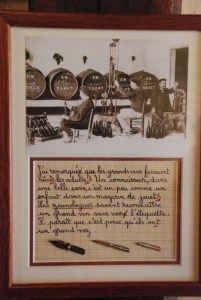 J'ai remarqué que les grands crus faisaient
rêver les adultes! Un connaisseur, dans
une belle cave, c'est un peu comme un
enfant dans un magasin de jouets!
les œunologues savent reconnaître
un grand vin sans voir l'étiquette.
Il paraît que c'est parce qu'ils ont
un grand nez.